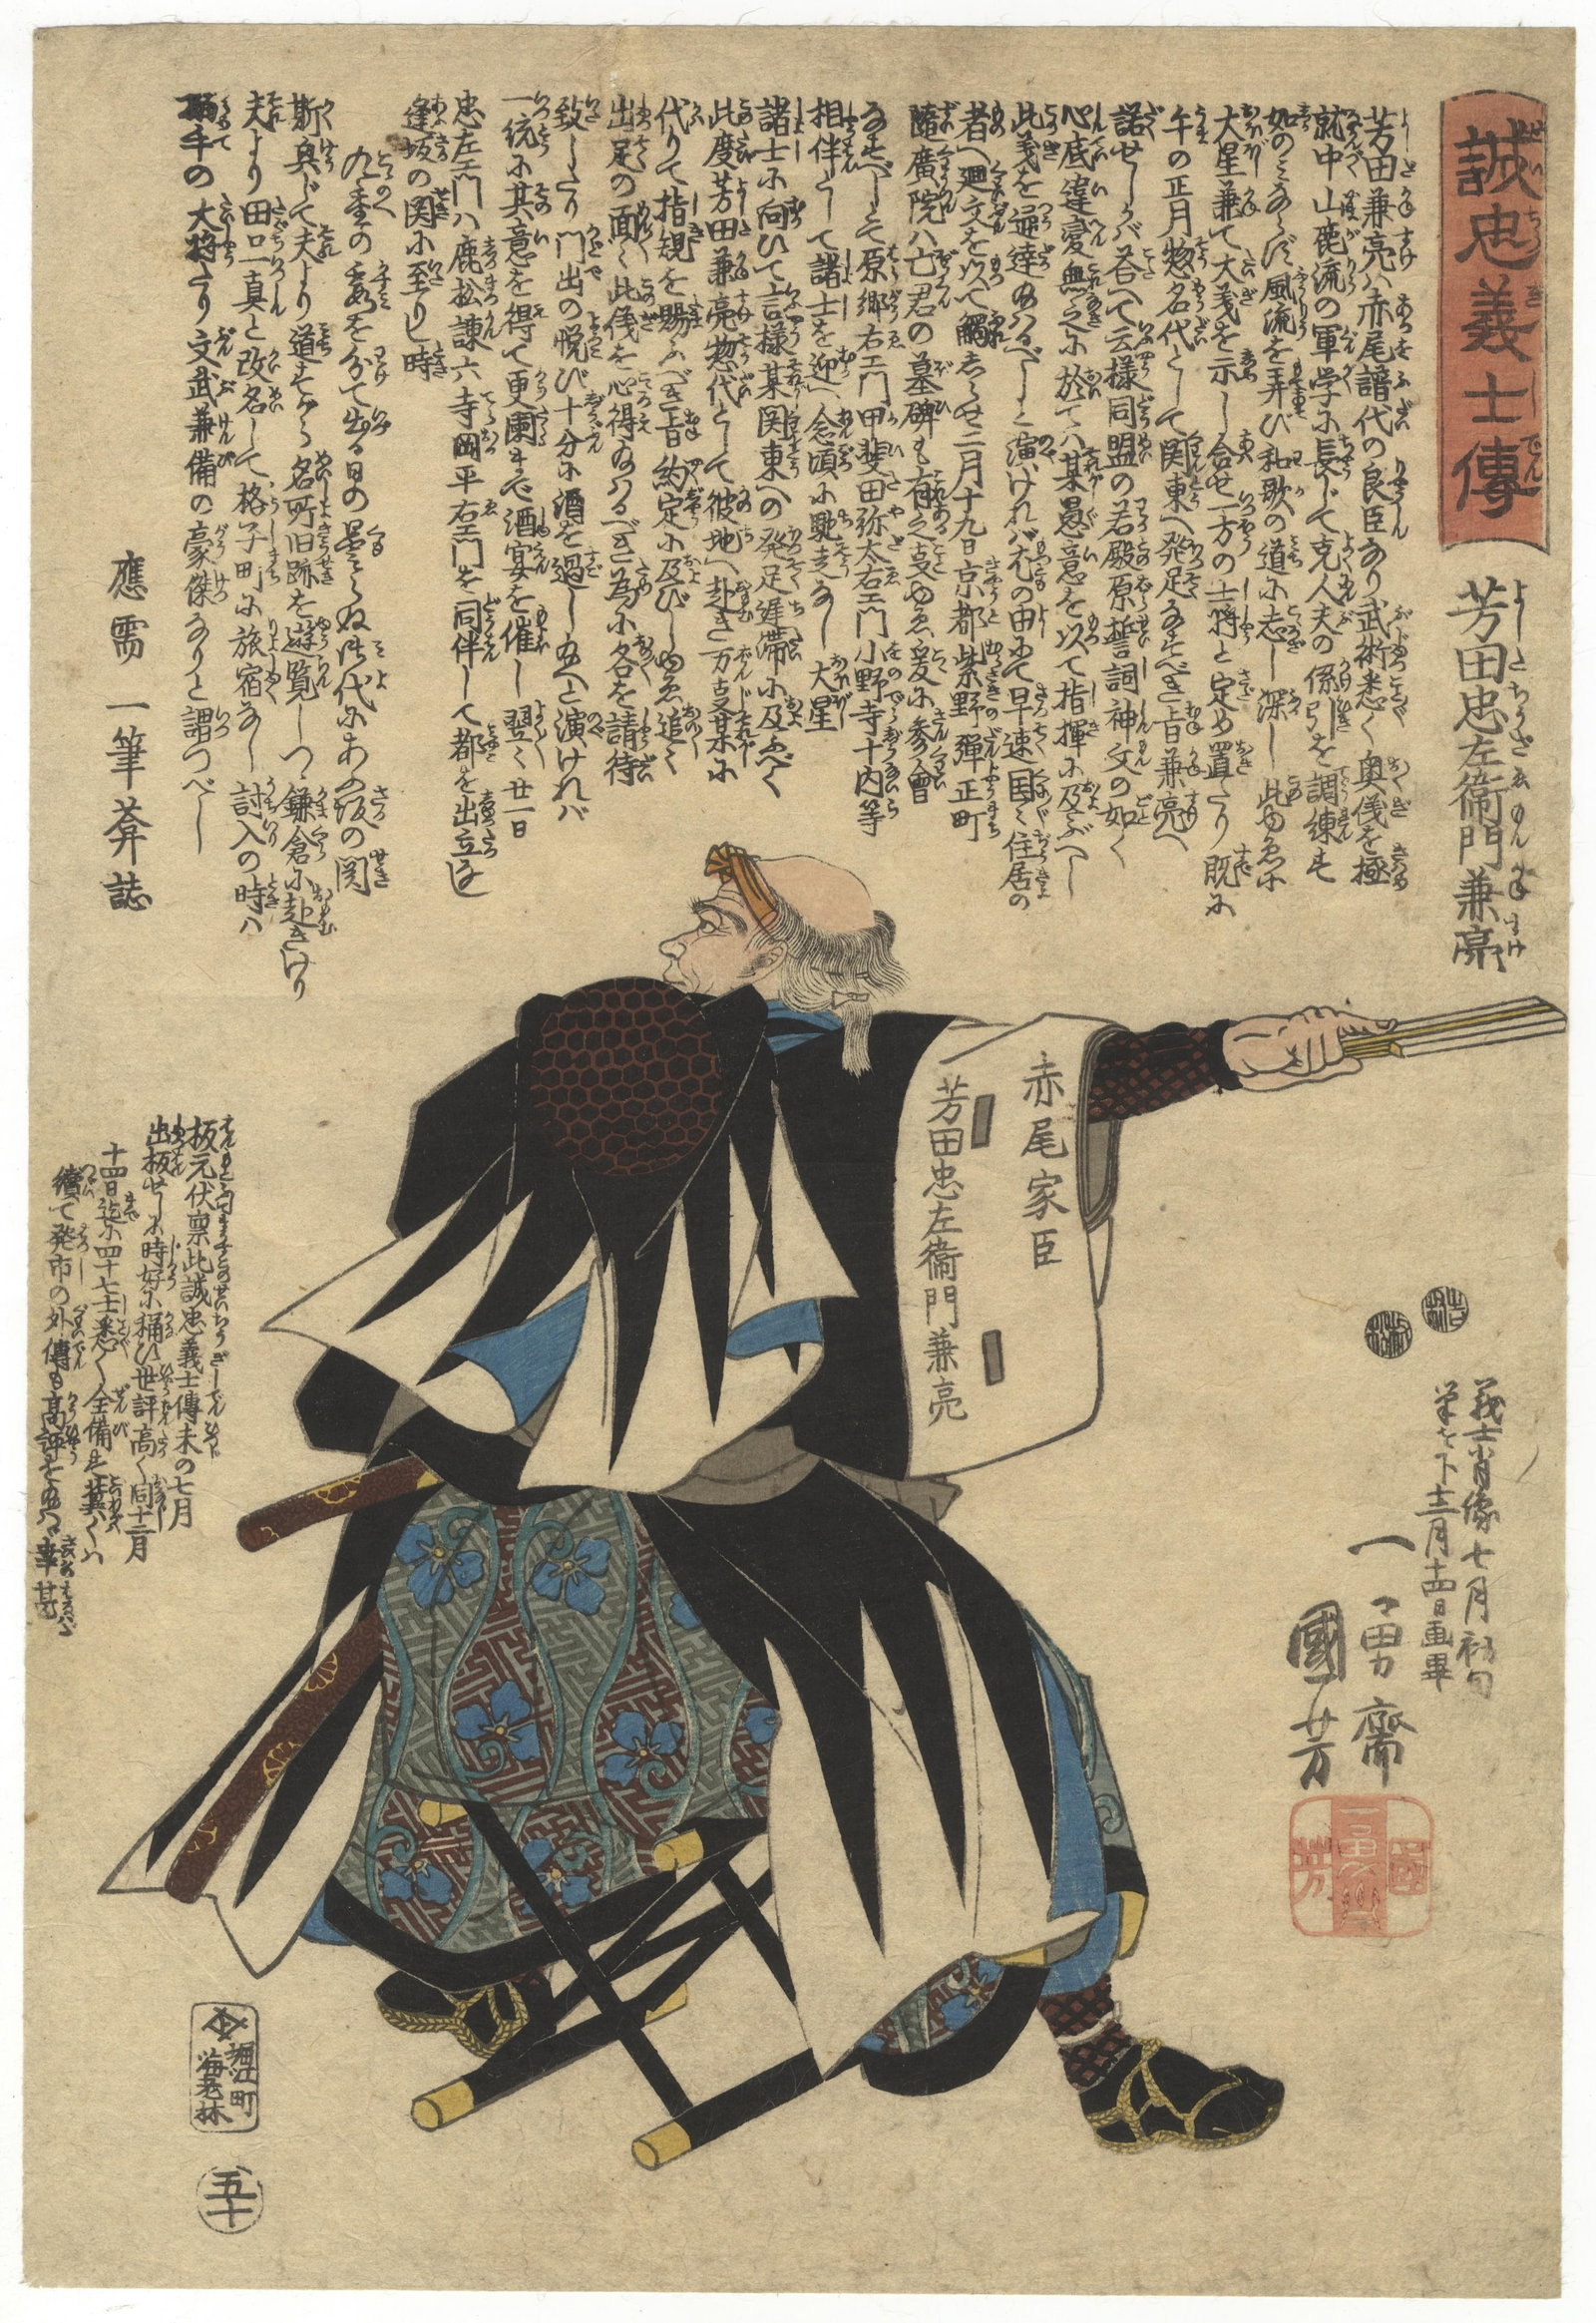 誠忠義士傳
芳田忠左衞門兼亮
芳田兼亮ハ赤尾譜代の良臣なり武術悉く奥儀を極
就中山鹿流の軍学に長じて克人夫の係引を調練す
如のミならず風流を弄び和歌の道に志し深し此ゆゑに
大星兼て大義を示し合せ一方の士将と定め置たり既に
午の正月惣名代として関東へ発足なすべき旨兼亮へ
諾せしかバ答へて云様同盟の若殿原誓詞神文の如く
心底違変無之に於てハ某愚意を以て指揮に及ぶべし
此義を通達あるべしと演けれバ尤の由にて早速国々住居の
者へ廻文を以て觸しらせ二月十九日京都紫野弾正町
隨廣院ハ亡君の墓碑も有之支ゆゑ爰に参會
なすべしとて原郷右エ門甲斐田弥太右エ門小野寺十内等
相伴うて諸士を迎へ念頃に馳走なし大星
諸士に向ひて言様某関東への発足遅滞に及ぶべく
此度芳田兼亮惣代として彼地へ赴き万支某に
代りて指規を賜ふべき旨約定に及びしゆゑ追々
出足の面々此儀を心得あるべき為に各を請待
致したり門出の悦び十分に酒を過し給へと演けれバ
一統に其意を得て更闌まで酒宴を催し翌々廿一日
忠左エ門ハ鹿松諫六寺岡平右エ門を同伴して都を出立なし
逢坂の関に至りし時
九重の霞を分て出る日の曇らぬ御代にあふ坂の関
斯奥じて夫より道すがら名所旧跡を遊覧しつゝ鎌倉に赴きけり
夫より田口一真と改名して格子町に旅宿なし討入の時ハ
搦手の大将たり文武兼備の豪傑なりと謂つべし
應需 一筆葊誌
赤尾家臣
芳田忠左衞門兼亮
義士肖像七月初旬
筆を下十二月十四日画畢
一勇齋
國芳
板元伏禀此誠忠義士傳未の七月
出板せしに時好に稱ひ世評高く同十二月
十四日迄に四十七士悉く全備す冀くハ
續て発市の外傳も高評を給ハらバ幸甚
堀江町
海老林
五十